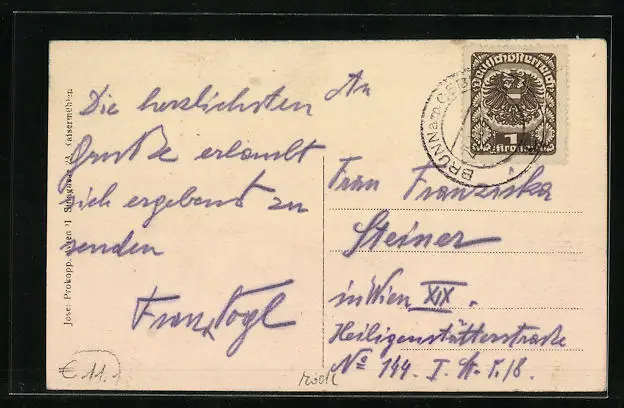 Die herzlichsten
Grüße erlaubt
sich ergebenst zu
senden
Franz Vogl
An
Frau Franziska
Steiner
in Wien XIX.
Heiligenstätterstraße
No 144. I. St. T./8.
Deutschösterreich
1
Krone
BRUNN am GEB
Josef Prokopp, Wien II 23, Kaisermühlen
€ 11.-